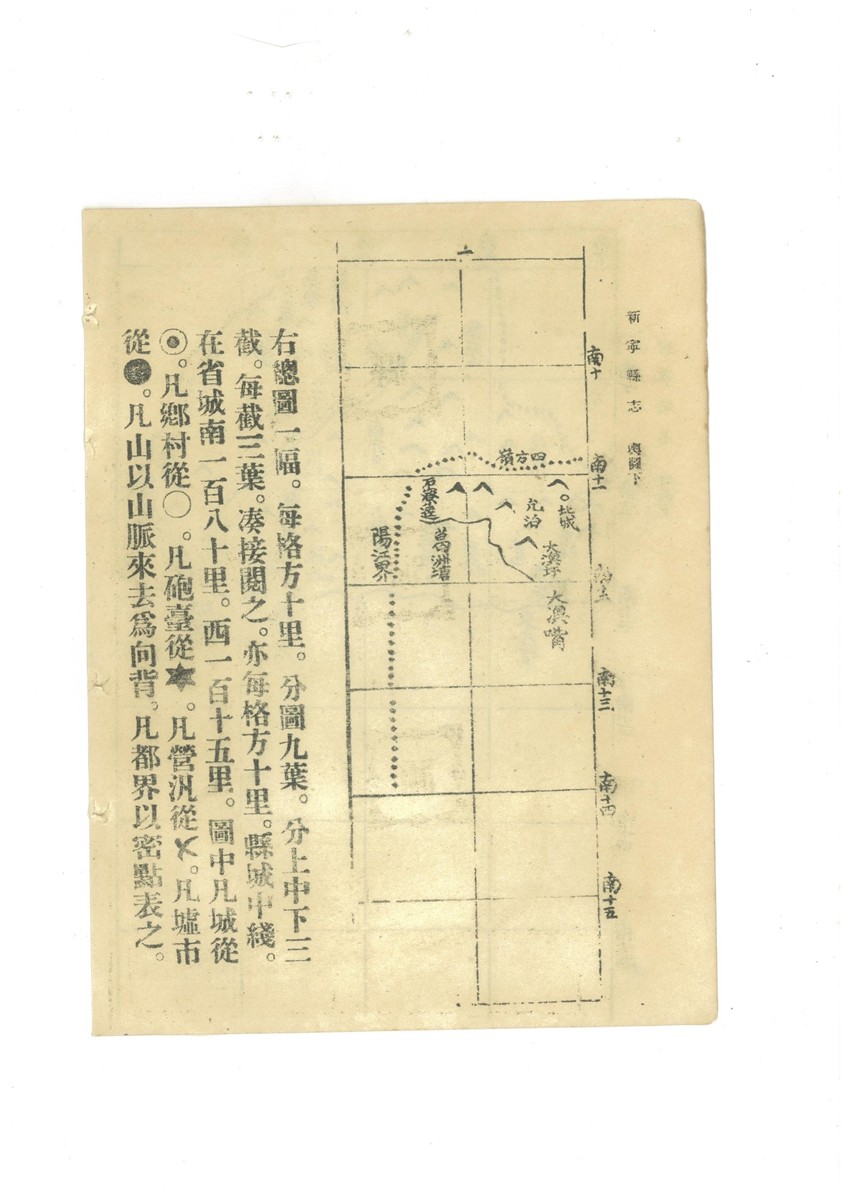 新寧縣志 輿圖下
一
南十
南十一
南十三
南十四
南十五
四方嶺
北城
允泊
大澳坪
大澳嘴
石寮逕
葛洲澫
陽江界
右總圖一幅。每格方十里。分圖九葉。分上中下三
截。每截三葉。湊接閱之。亦每格方十里。縣城中綫。
在省城南一百八十里。西一百十五里。圖中凡城從
◉。凡鄉村從〇。凡砲臺從★。凡營汛從✕。凡墟市
從●。凡山以山脈來去為向背。凡都界以密點表之。